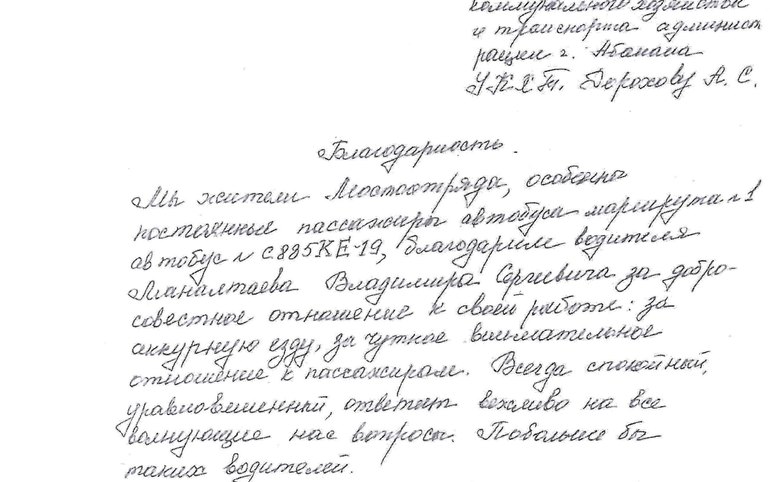 коммунального хозяйства
и транспорта админист
рации г. Абакана
УКХТ. Дорохову А. С.
Благодарность.
Мы жители Мостоотряда, особенно
постоянные пассажиры автобуса маршрута № 1
автобус № С885КЕ-19, благодарим водителя
Владимира Сергеевича за добро-
совестное отношение к своей работе: за
аккурную езду, за чуткое внимательное
отношение к пассажирам. Всегда спокойный,
уравновешенный, ответит вежливо на все
волнующие нас вопросы. Побольше бы
таких водителей.